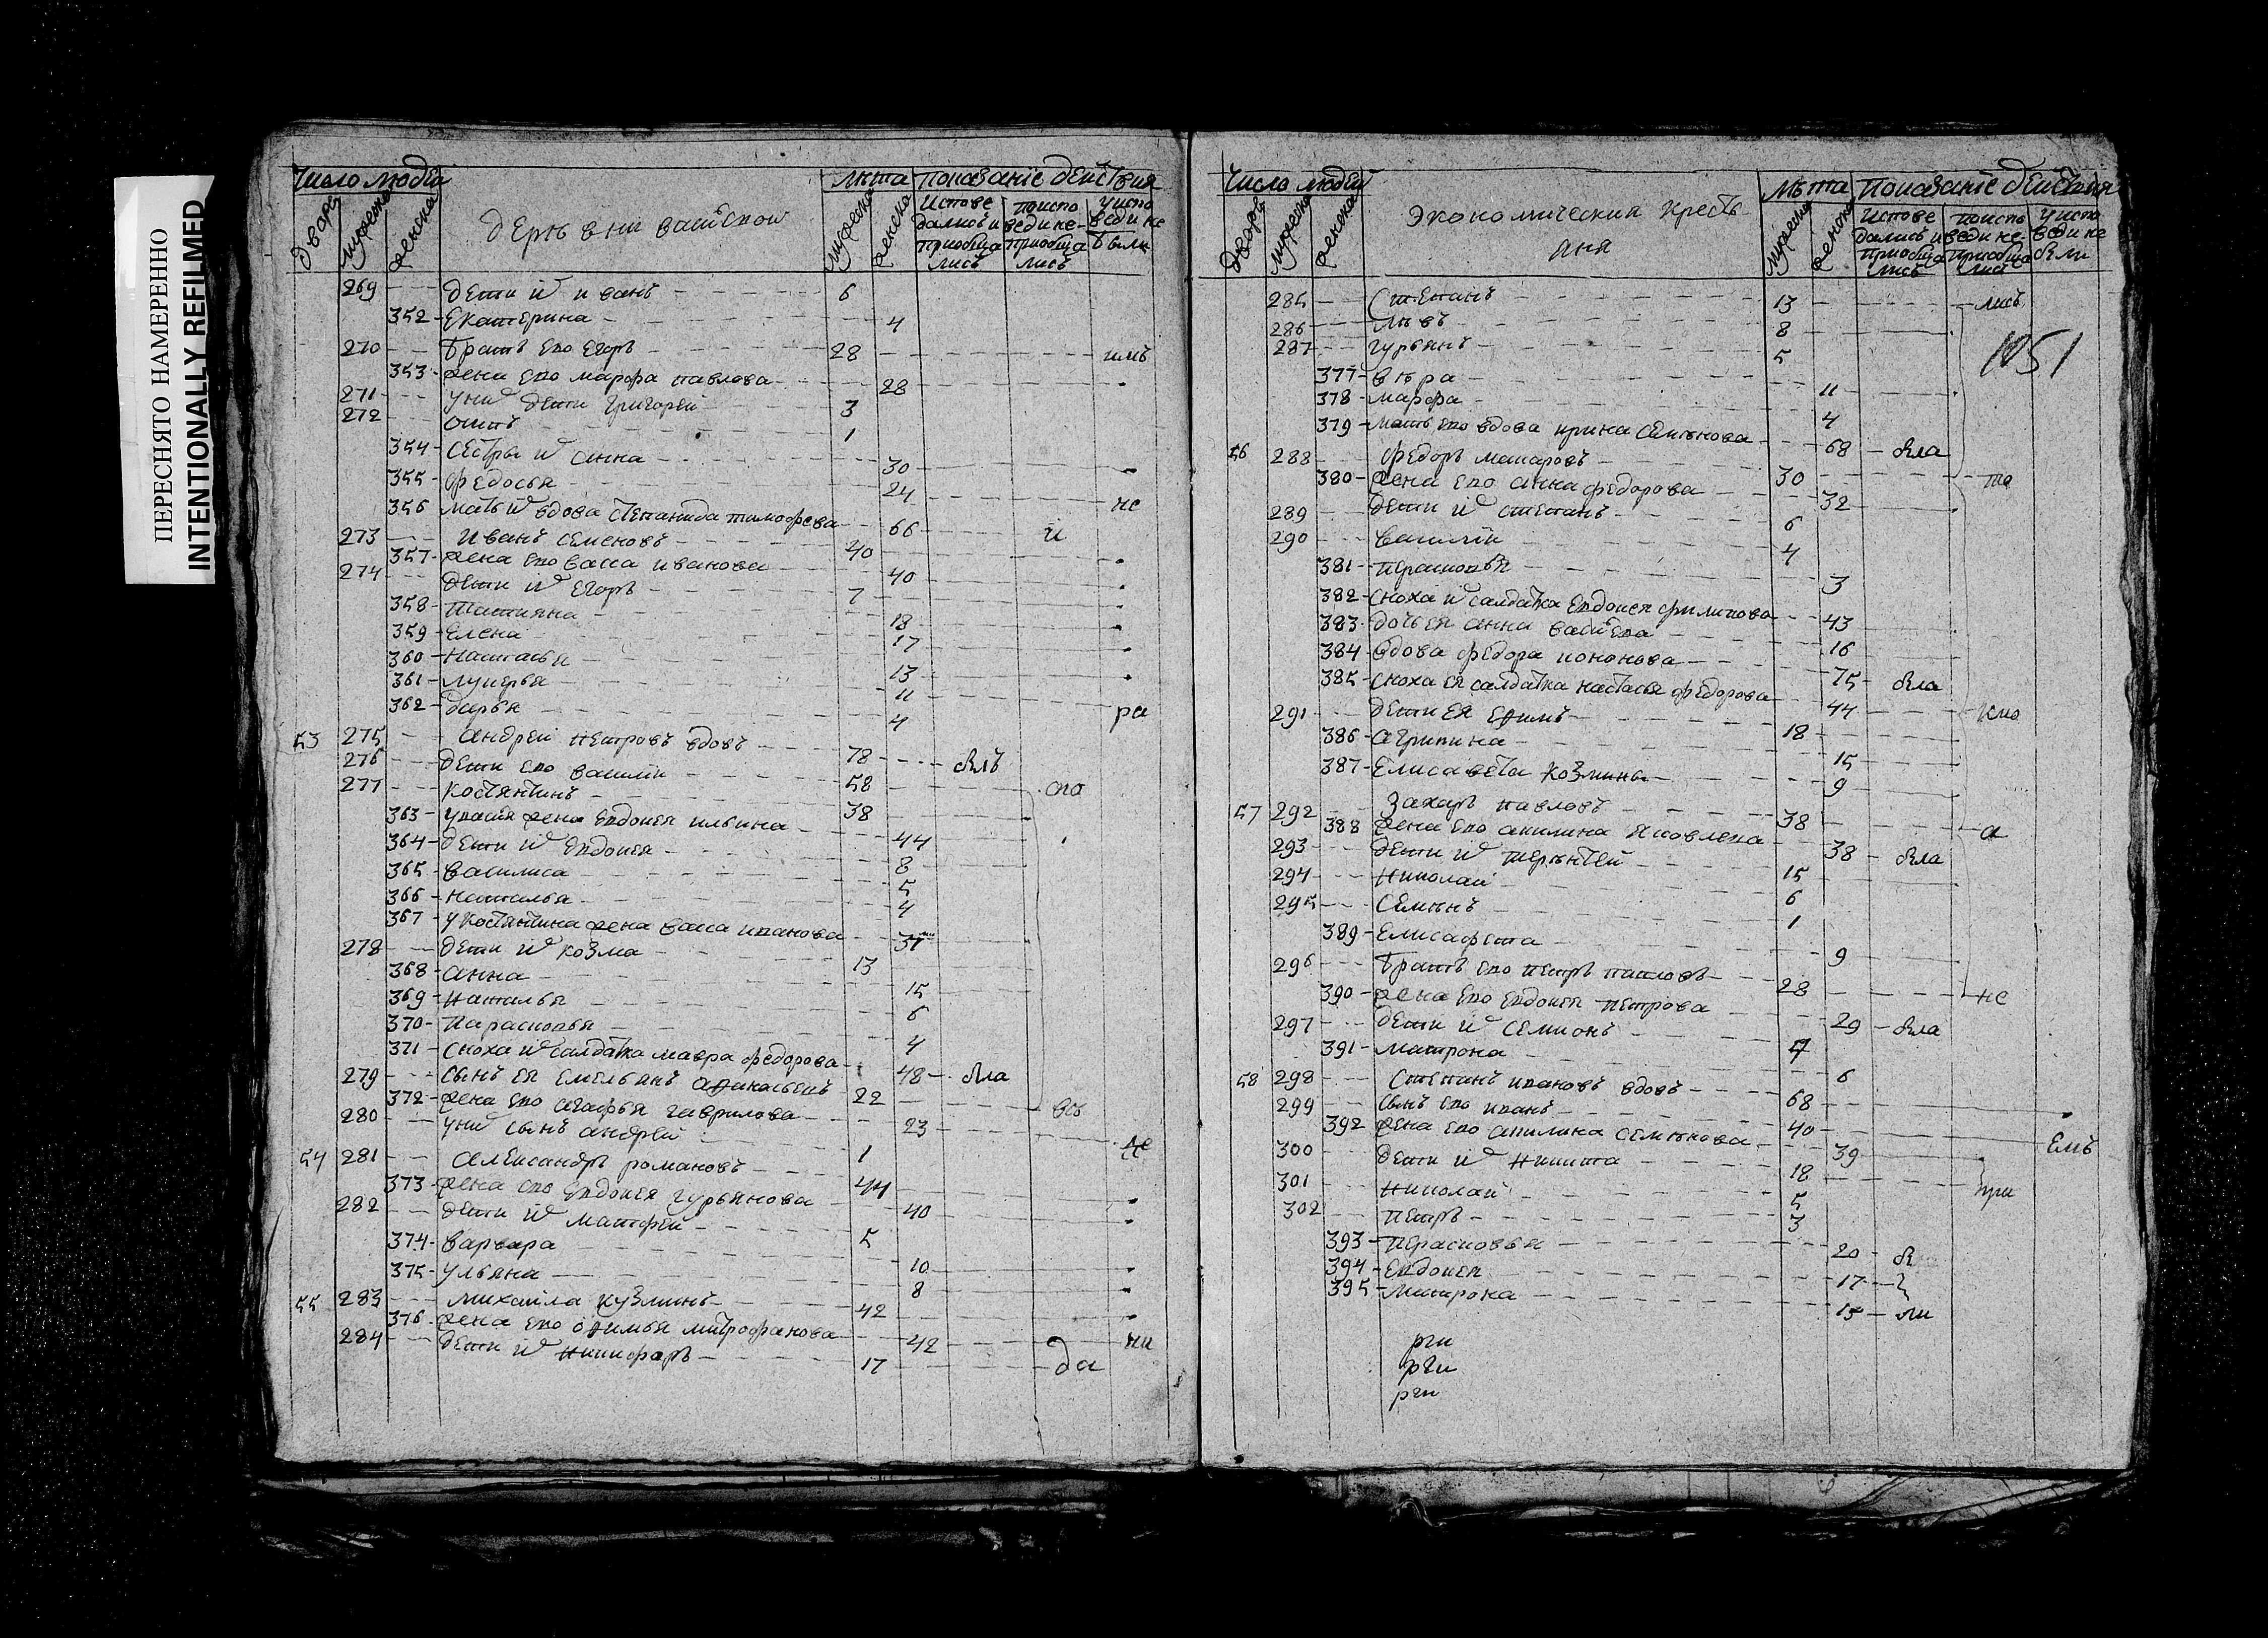 ПЕРЕСНЯТО НАМЕРЕННО
INTENTIONALLY REFILMED
Число людей
лѣта показаніе действия
дворо мужеска женска
мужеска женска
Испове дались и приобща лись
поиспо веди не приобща лись
у испо веди не были
дерѣвни
269 дети их иванъ 6
352 Екатерина 4
270 братъ ево Егоръ 28
353 жена ево марфа павлова 28
271 у них дети григорей 3
272 осипъ 1
354 сестры их анна 30
355 федосья 24
356 мать их вдова степанида тимофева 66
273 иванъ семеновъ 40
357 жена ево васа иванова 40
274 дети их егоръ 7
358 татияна 18
359 елена 17
360 настасья 13
361 лукерья 11
362 дарья 4
53 275 андрей петровъ вдовъ 78 былъ
276 дети ево василии 58
277 костянтинъ 38
363 жена евдокея ильина 44
364 дети их евдокея 8
365 василиса 5
366 наталья 4
367 у костянтина жена васа иванова
278 дети их козма 13
368 анна 15
369 наталья 6
370 парасковья 4
371 сноха их салдатка мавра федорова 48 была
279 сынъ ея емельянъ 22
372 жена ево агафья гаврилова 23
280 у них сынъ андрей 1
54 281 александръ романовъ 44
373 жена ево евдокея гурьянова 40
282 дети их матфей 5
374 варвара 10
375 ульяна 8
55 283 михаила кузминъ 42
376 жена ево офимья митрофанова 42
284 дети их никифоръ 17
Число людей
лѣта показаніе действия
дворо мужеска женска
мужеска женска
Испове дались и приобща лись
поиспо веди не приобща лись
у испо веди не были
экономическия кресть
яня
1051
285 степанъ 13
286 лѣвъ 8
287 гурьянъ 5
377 вѣра 11
378 марфа 4
379 мать ево вдова ирина семѣнова 68 была
56 288 федоръ макаровъ 30
380 жена ево анна федорова 32
289 дети их степанъ 6
290 василий 4
381 парасковья 3
382 сноха их салдатка евдокея филипова 43
383 дочь ея анна 16
384 вдова федора кононова 75 была
385 сноха ея салдатка настасья федорова 44
291 дети ея ефимъ 18
386 агрипина 15
387 елисавета козмина 9
57 292 захаръ павловъ 38
388 жена ево акилина яковлева 38 была
293 дети их терѣнтей 15
294 николай 6
295 семѣнъ 1
389 елисафета 9
296 братъ ево петръ павловъ 28
390 жена ево евдокея петрова 29 была
297 дети их семионъ
391 матрона 6
58 298 степанъ ивановъ вдовъ 68
299 сынъ ево иванъ 40
392 жена ево акилина семѣнова 39
300 дети их никита 18
301 николай 5
302 петръ 3
393 парасковья 20
394 евдокея 17
395 матрона 15
рги
рги
рги